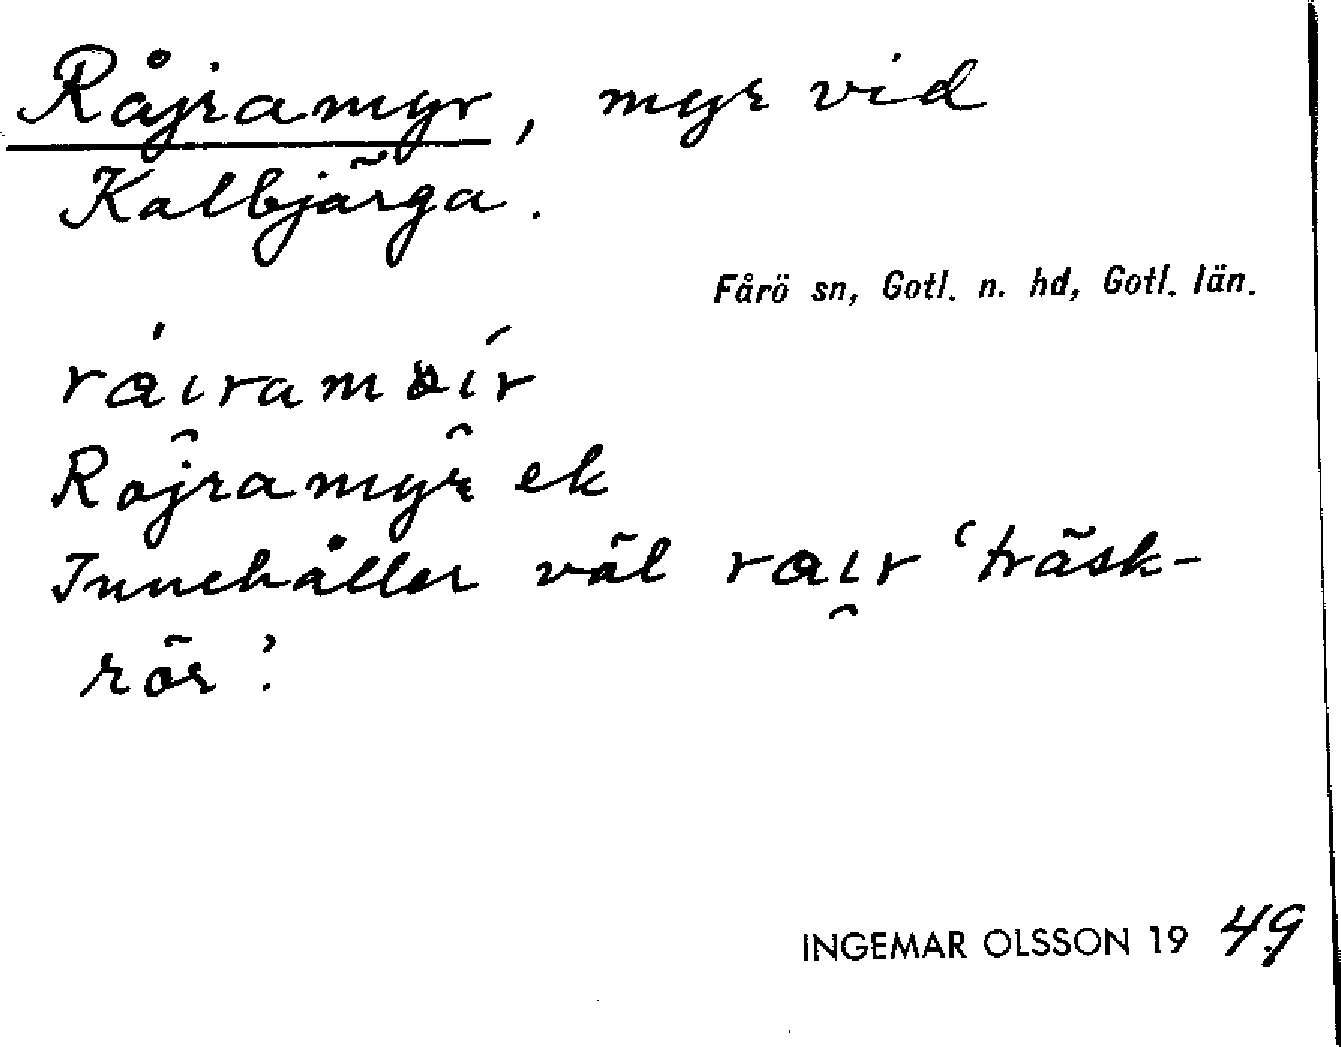 Råjramyr, myr vid
Kalbjärga.
Fårö sn, Gotl. n. hd, Gotl. län.
Röjramyr ek
Innehåller väl 'träsk-
rör'.
INGEMAR OLSSON 19 49